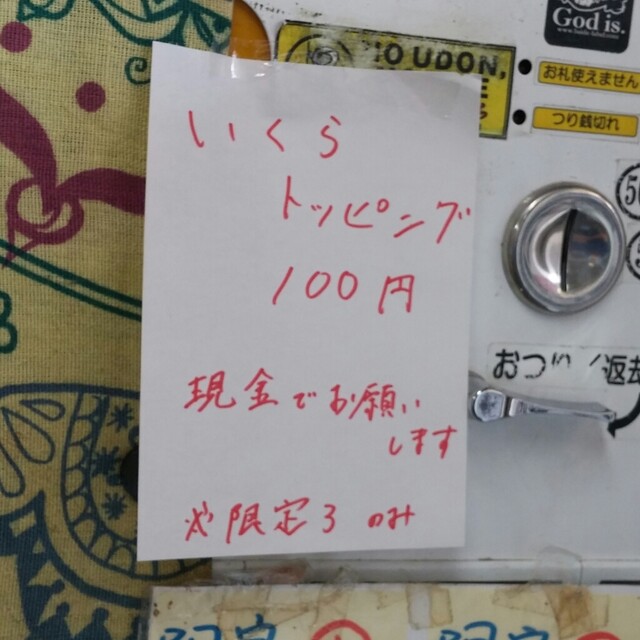 いくら
トッピング
100円
現金でお願い
します
※限定3のみ
God is.
O UDON,
お礼使えません
つり銭切れ
返却